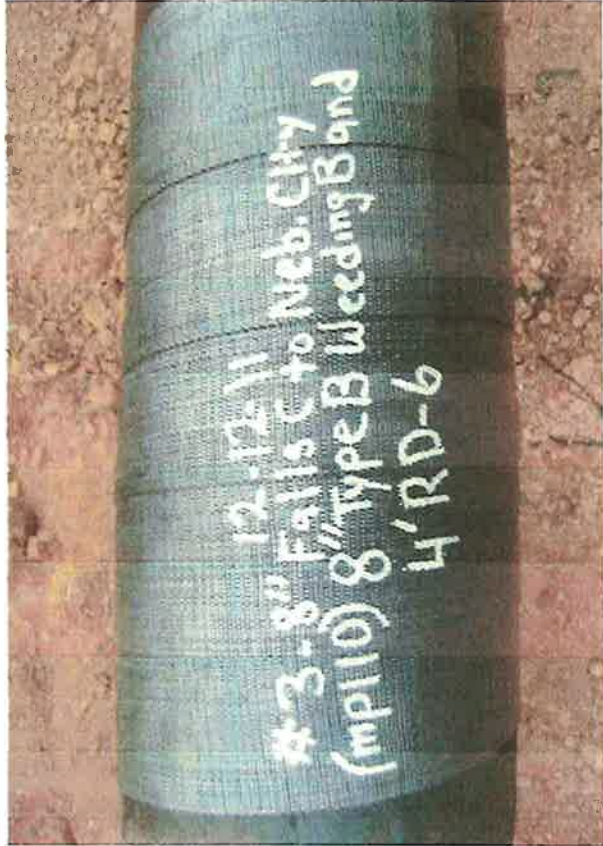 12-12-11
#3-8" Falls C to Neb. City
(mp110) 8" Type B Weeding Band
4' RD-6